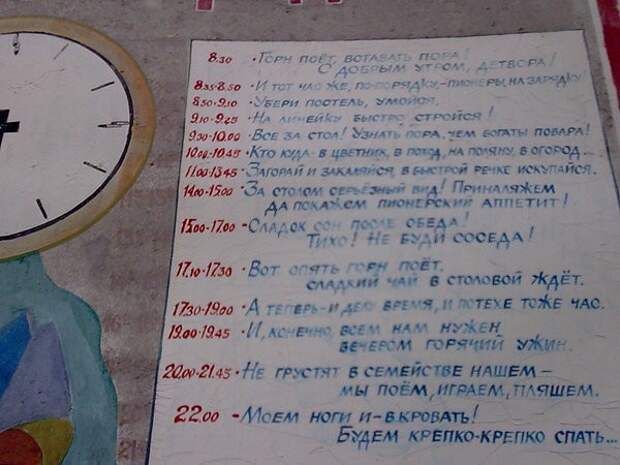 8.30 - Горн поёт, вставать пора!
С добрым утром, детвора!
8.35-8.50 - И тот час же, по-порядку,-пионеры, на зарядку!
8.50-9.10 - Убери постель, умойся,
9.10-9.25 - На линейку быстро стройся!
9.30-10.00 - Все за стол! Узнать пора, чем богаты повара!
10.00-10.45 - Кто куда - в цветник, в поход, на поляну, в огород...
11.00-13.45 - Загорай и закаляйся, в быстрой речке искупайся.
14.00-15.00 - За столом серьёзный вид! Приналяжем
да покажем пионерский аппетит!
15.00-17.00 - Сладок сон после обеда!
Тихо! Не буди соседа!
17.10-17.30 - Вот опять горн поёт,
сладкий чай в столовой ждёт.
17.30-19.00 - А теперь - и делу время, и потехе тоже час.
19.00-19.45 - И, конечно, всем нам нужен
вечером горячий ужин.
20.00-21.45 - Не грустят в семействе нашем -
мы поём, играем, пляшем.
22.00 - Моем ноги и - в кровать!
Будем крепко-крепко спать...